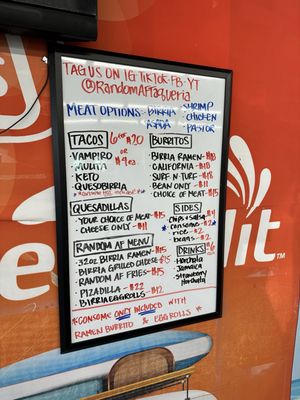 TAG US ON IG TIKTOK FB YT
@RandomAFTaqueria
MEAT OPTIONS - BIRRIA - SHRIMP
- ASADA - CHICKEN
- PASTOR
TACOS 6 for $20
or $4 ea
- VAMPIRO
- MULITA
- KETO
- QUESOBIRRIA
BURRITOS
- BIRRIA RAMEN - $18
- CALIFORNIA - $18
- SURF N TURF - $18
- BEAN ONLY - $11
- CHOICE OF MEAT - $15
QUESADILLAS
- YOUR CHOICE OF MEAT - $15
- CHEESE ONLY - $11
SIDES
chips & salsa - $4
consome - $2
rice - $2
beans - $2
RANDOM AF MENU
- 32oz BIRRIA RAMEN - $15
- BIRRIA GRILLED CHEESE $15
- RANDOM AF FRIES - $15
- PIZADILLA - $22
- BIRRIA EGGROLLS - $12
DRINKS $6
- Horchata
- Jamaica
- Strawberry
Horchata
*CONSOME ONLY INCLUDED WITH
RAMEN BURRITO & EGG ROLLS